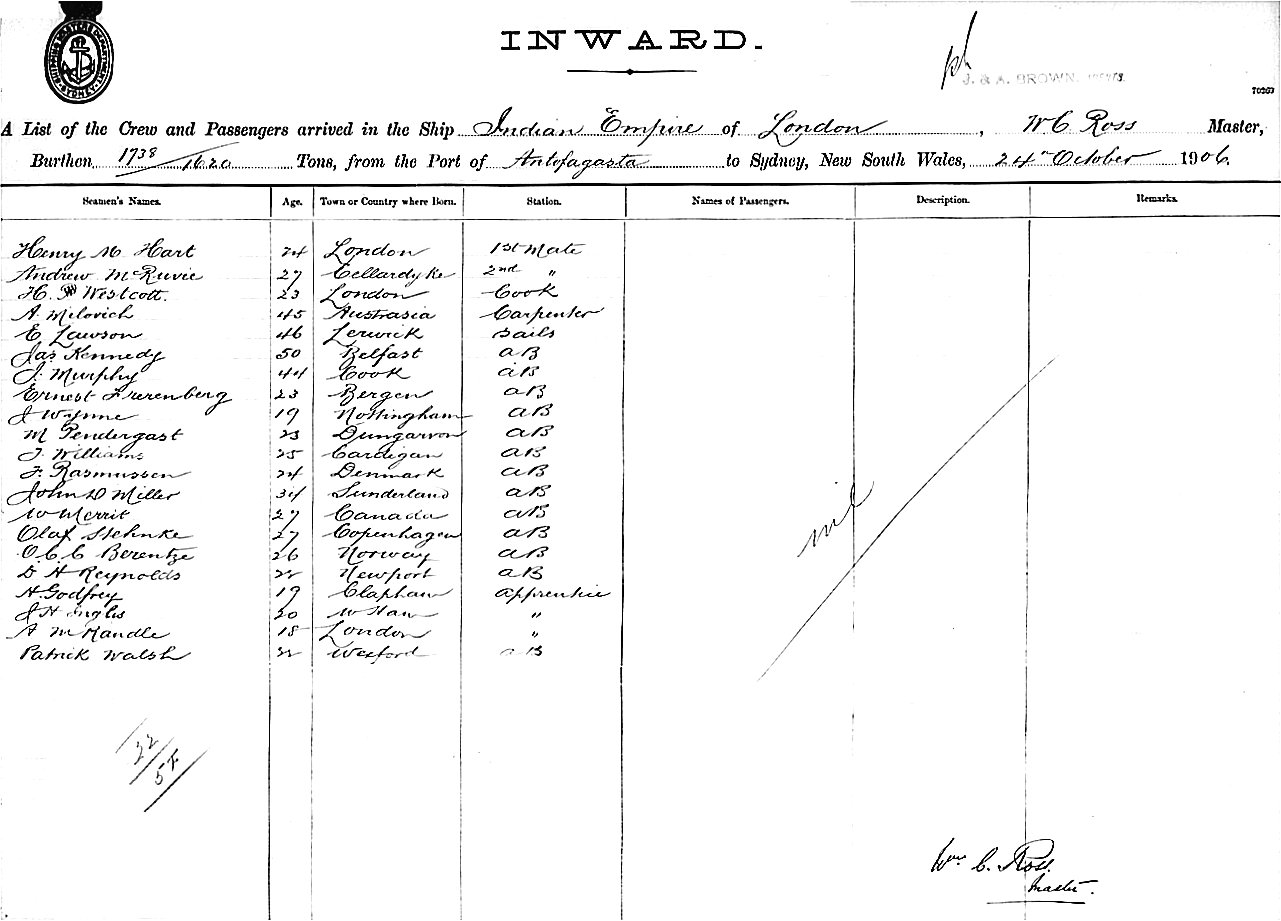 SHIPPING MASTER'S DEPARTMENT SYDNEY
INWARD.
J. & A. BROWN,
70263
A List of the Crew and Passengers arrived in the Ship Indian Empire of London, W C Ross Master,
Burthen 1738/1620 Tons, from the Port of Antofagasta to Sydney, New South Wales, 24th October 1906.
Seamen's Names. Age. Town or Country where Born. Station. Names of Passengers. Description. Remarks.
Henry M Hart 24 London 1st Mate
Andrew McRuvie 27 Cellardyke 2nd "
H. Westcott. 23 London Cook
A. Milovich 45 Austrasia Carpenter
E Lawson 46 Lerwick Sails
Jas Kennedy 50 Belfast aB
J. Murphy 44 Cook aB
Ernest 23 Bergen aB
J Wynne 19 Nottingham aB
M Pendergast 23 Dungarvon aB
J. Williams 25 Cardigan aB
F. Rasmussen 24 Denmark aB
John D Miller 34 Sunderland aB
W Merrit 27 Canada aB
Olaf Stehnke 27 Copenhagen aB
O.C.C Berentze 26 Norway aB
D H Reynolds 22 Newport aB
H Godfrey 19 Clapham apprentice
J H Inglis 20 W Ham "
A M Randle 18 London "
Patrick Walsh 22 Wexford aB
nil
22/5F
Wm C. Ross.
Master.